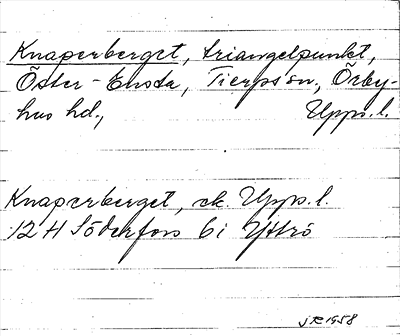 Knaperberget, triangelpunkt,
Öster-Ensta, Tierps sn., Örby-
hus hd., Upps. l.
Knaperberget, ek. Upps. l.
12 H Söderfors 6 i Yttrö
JR 1958